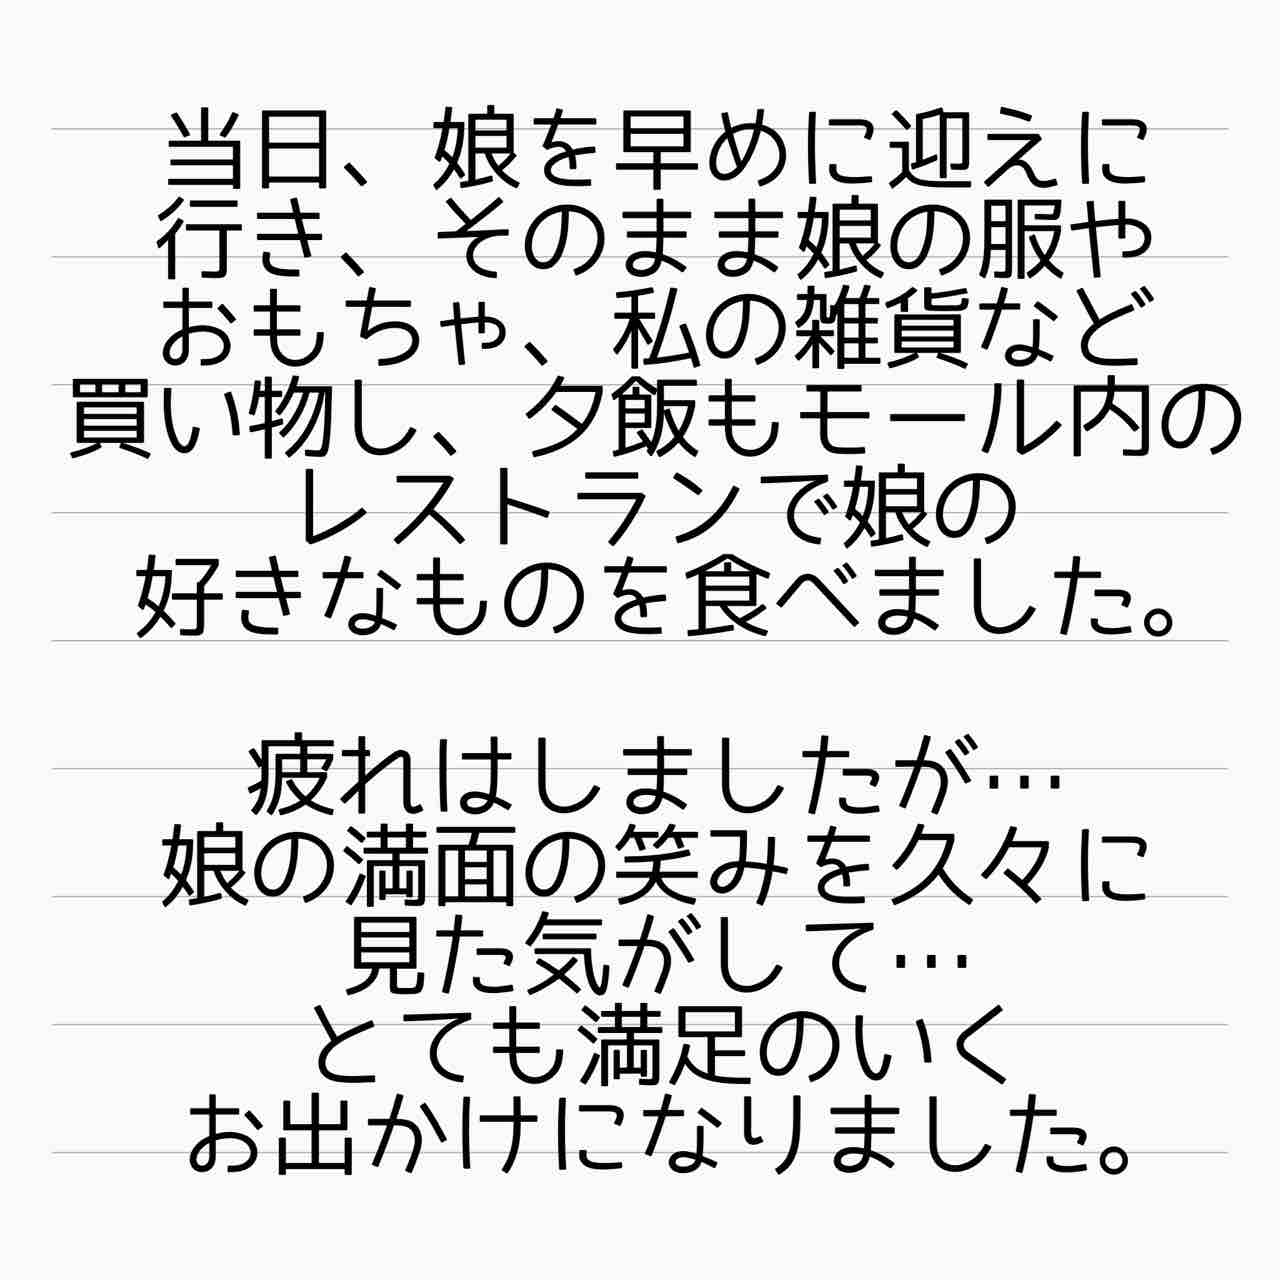 当日、娘を早めに迎えに
行き、そのまま娘の服や
おもちゃ、私の雑貨など
買い物し、夕飯もモール内の
レストランで娘の
好きなものを食べました。
疲れはしましたが…
娘の満面の笑みを久々に
見た気がして…
とても満足のいく
お出かけになりました。